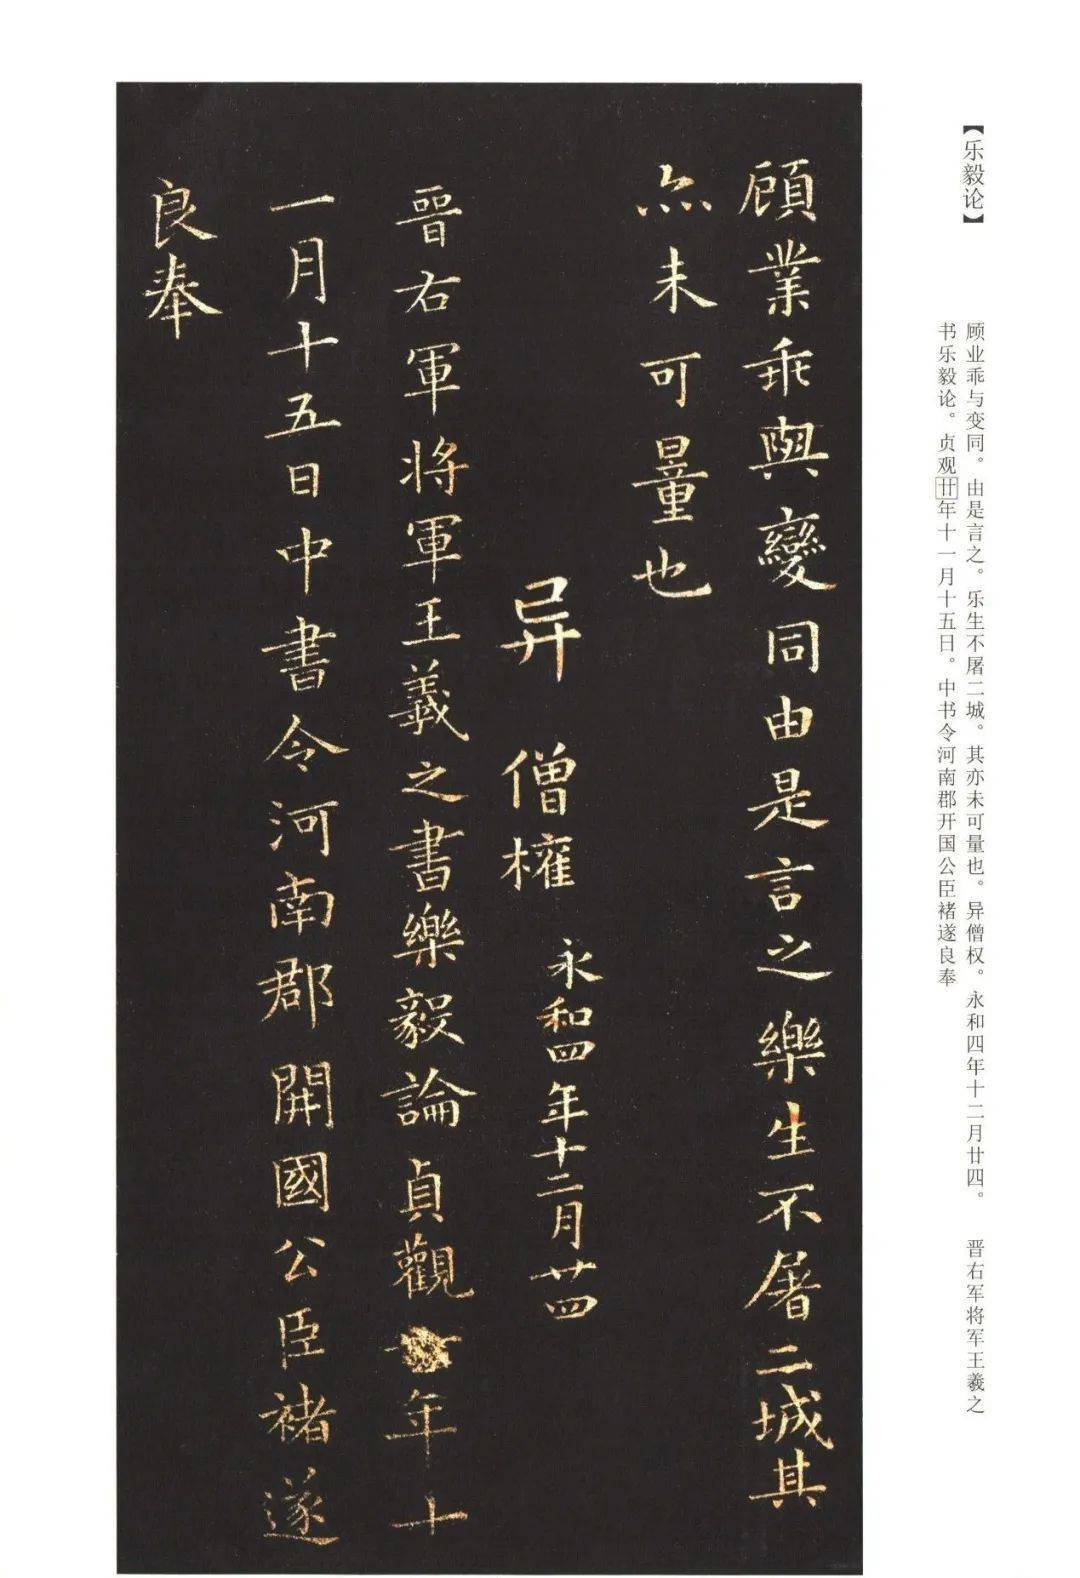 【乐毅论】
顾业乖与变同。由是言之。乐生不屠二城。其亦未可量也。异僧权。永和四年十二月廿四。 晋右军将军王羲之
书乐毅论。贞观廿年十一月十五日。中书令河南郡开国公臣褚遂良奉
顧業乖與變同由是言之樂生不屠二城其
亦未可量也
异 僧權 永和四年十二月廿四
晉右軍将軍王羲之書樂毅論貞觀年十
一月十五日中書令河南郡開國公臣褚遂
良奉